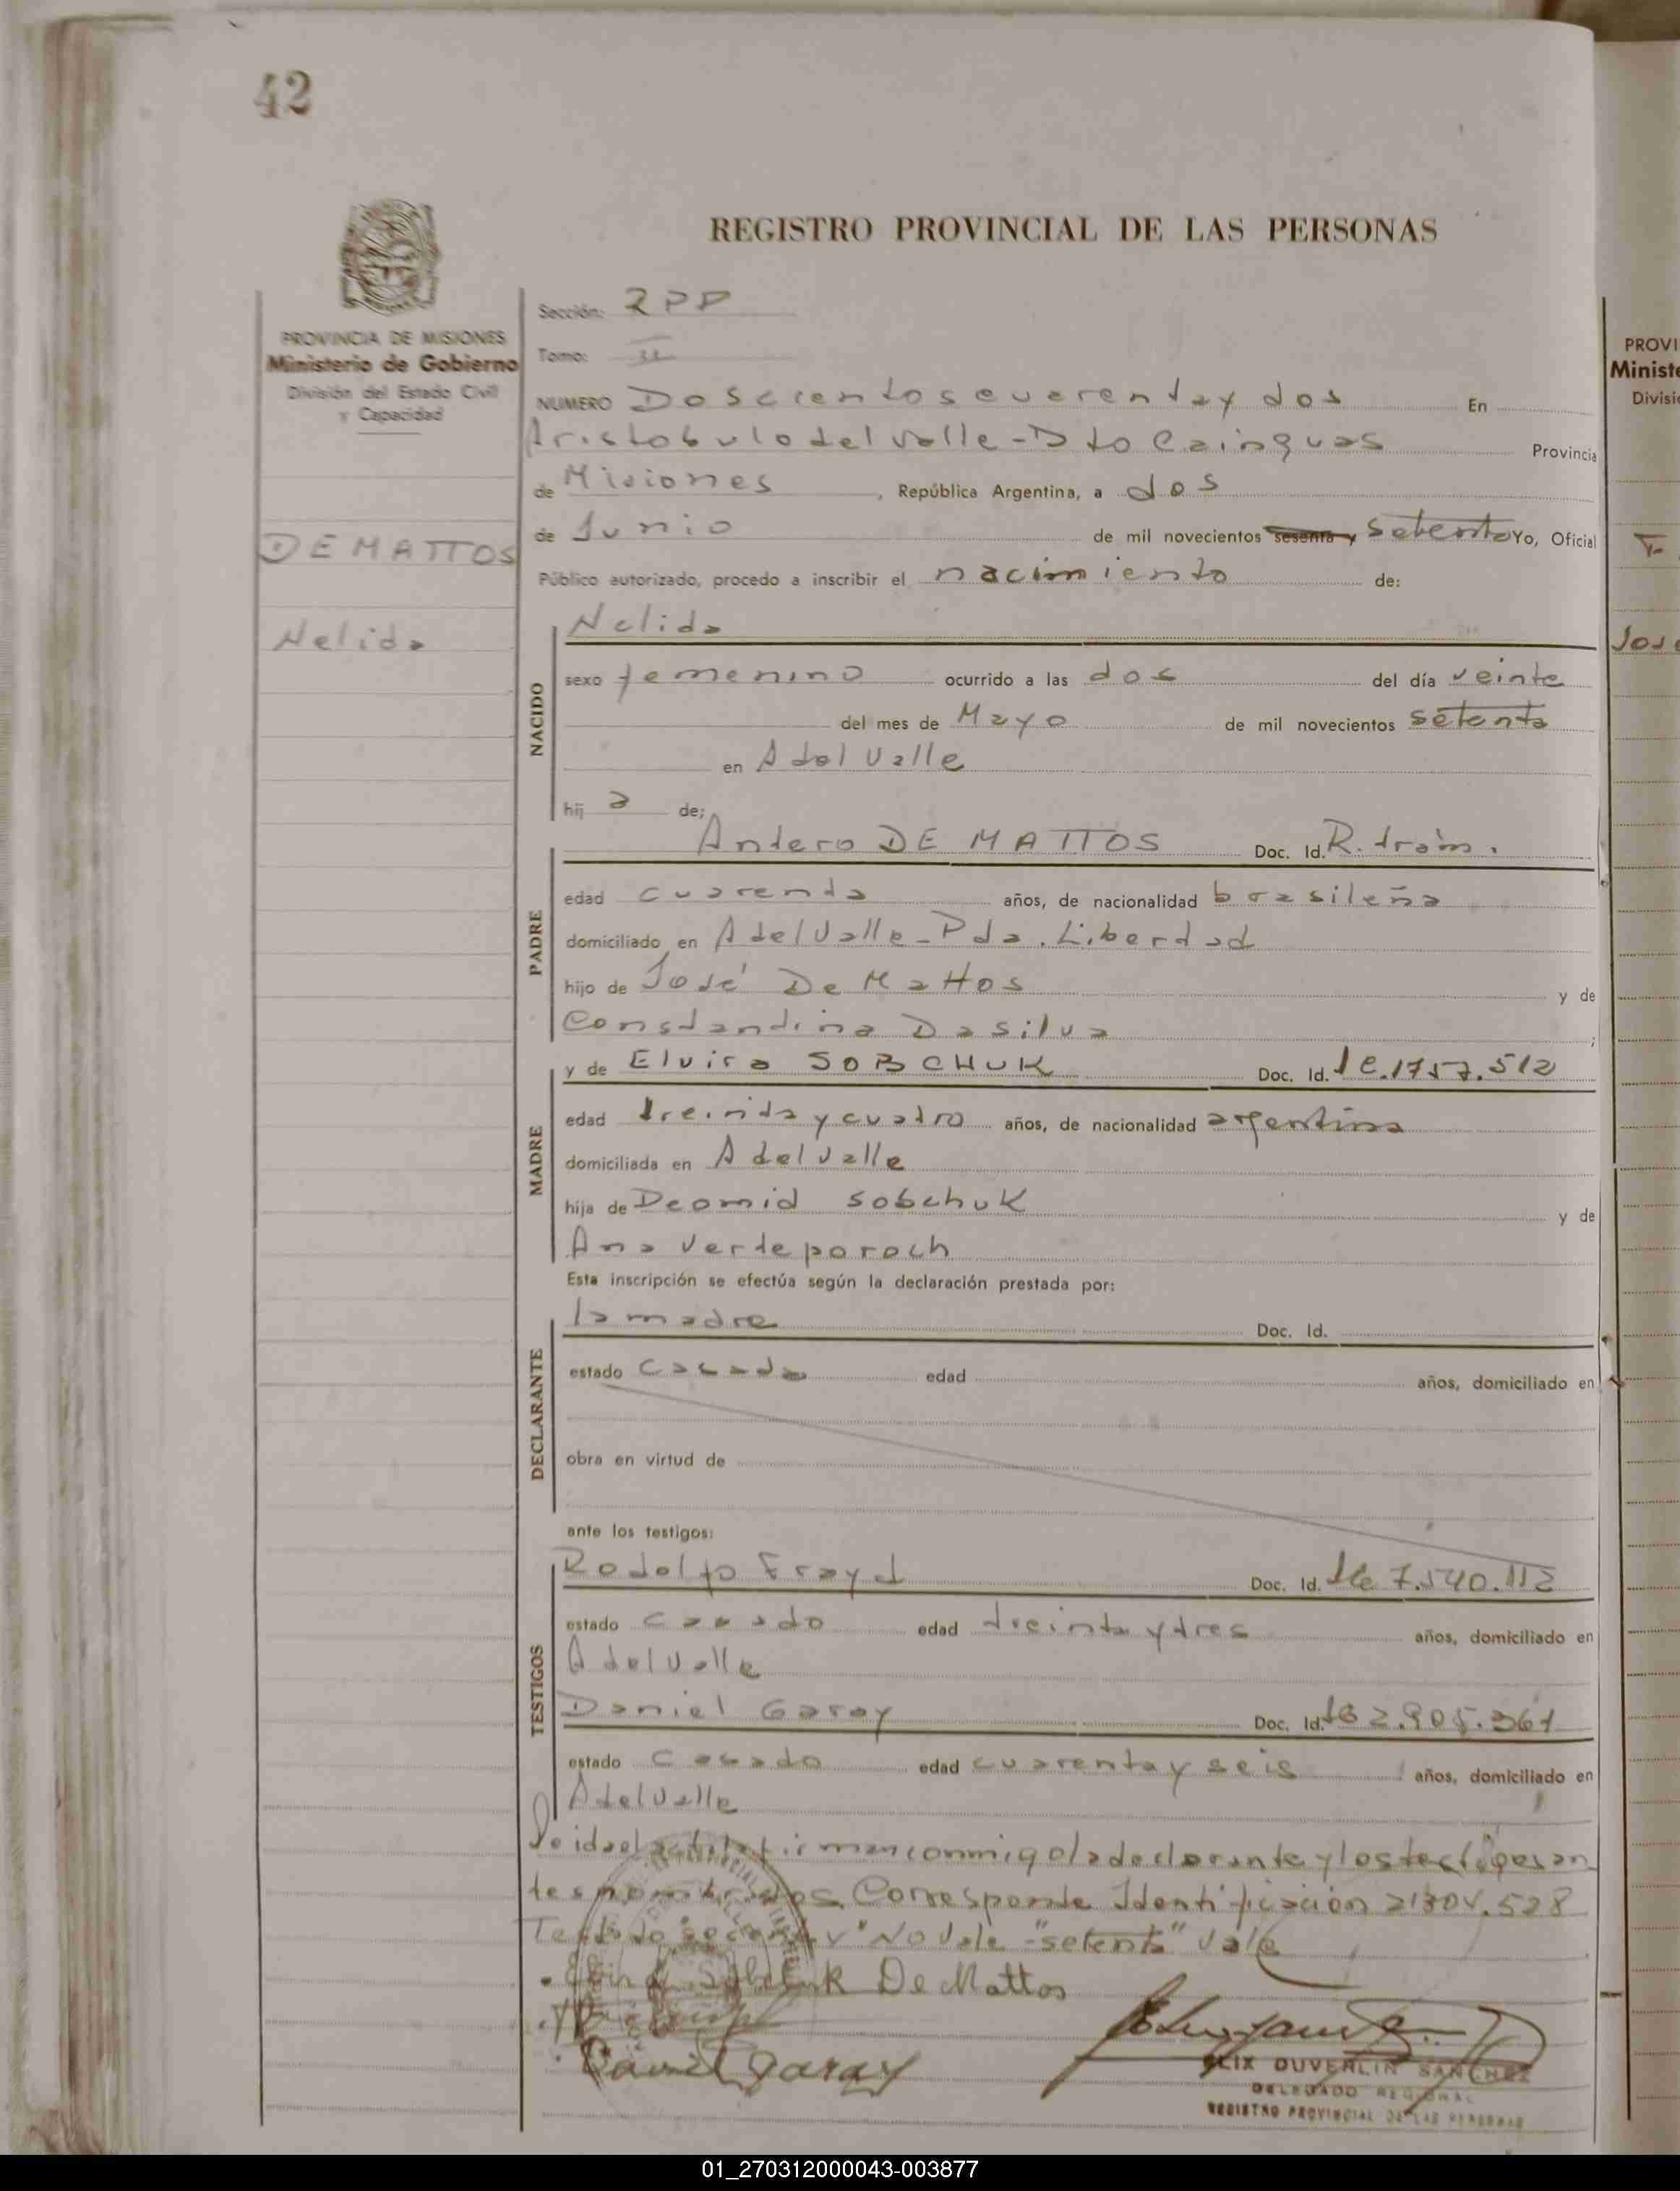 42
REGISTRO PROVINCIAL DE LAS PERSONAS
PROVINCIA DE MISIONES
Ministerio de Gobierno
División del Estado Civil
y Capacidad
DE MATTOS
Nelida
Sección: 2PP
Tomo:
NUMERO Doscientos cuarenta y dos En
Aristobulo del Valle - Dto Cainguas Provincia
de Misiones, República Argentina, a dos
de Junio de mil novecientos sesenta y setenta Yo, Oficial
Público autorizado, procedo a inscribir el nacimiento de:
NACIDO
Nelida
sexo femenino ocurrido a las dos del día veinte
del mes de Mayo de mil novecientos setenta
en A del Valle
hij a de;
PADRE
Antero DE MATTOS Doc. Id. R. trám.
edad cuarenta años, de nacionalidad brasileña
domiciliado en A del Valle - Pda. Libertad
hijo de José De Mattos y de
Constantina Da Silva ;
MADRE
y de Elvira SOBCHUK Doc. Id. 1e.1757.512
edad treinta y cuatro años, de nacionalidad argentina
domiciliada en A del Valle
hija de Deomid Sobchuk y de
Ana Verdeporoch
Esta inscripción se efectúa según la declaración prestada por:
DECLARANTE
la madre Doc. Id.
estado casada edad años, domiciliado en
obra en virtud de
ante los testigos:
TESTIGOS
Rodolfo Frayd Doc. Id. 7.540.112
estado casado edad treinta y tres años, domiciliado en
A del Valle
Daniel Garay Doc. Id. 2.905.361
estado casado edad cuarenta y seis años, domiciliado en
A del Valle
Leida el acta la firman conmigo la declarante y los testigos an
tes nombrados Corresponde Identificación 21304.528
Testado "sesenta y" No Vale - "setenta" Vale
Elvira Sobchuk De Mattos
Daniel Garay
FELIX DUVERLIN SANCHEZ
DELEGADO REGIONAL
REGISTRO PROVINCIAL DE LAS PERSONAS
PROVI
Ministe
Divisi
José
01_270312000043-003877